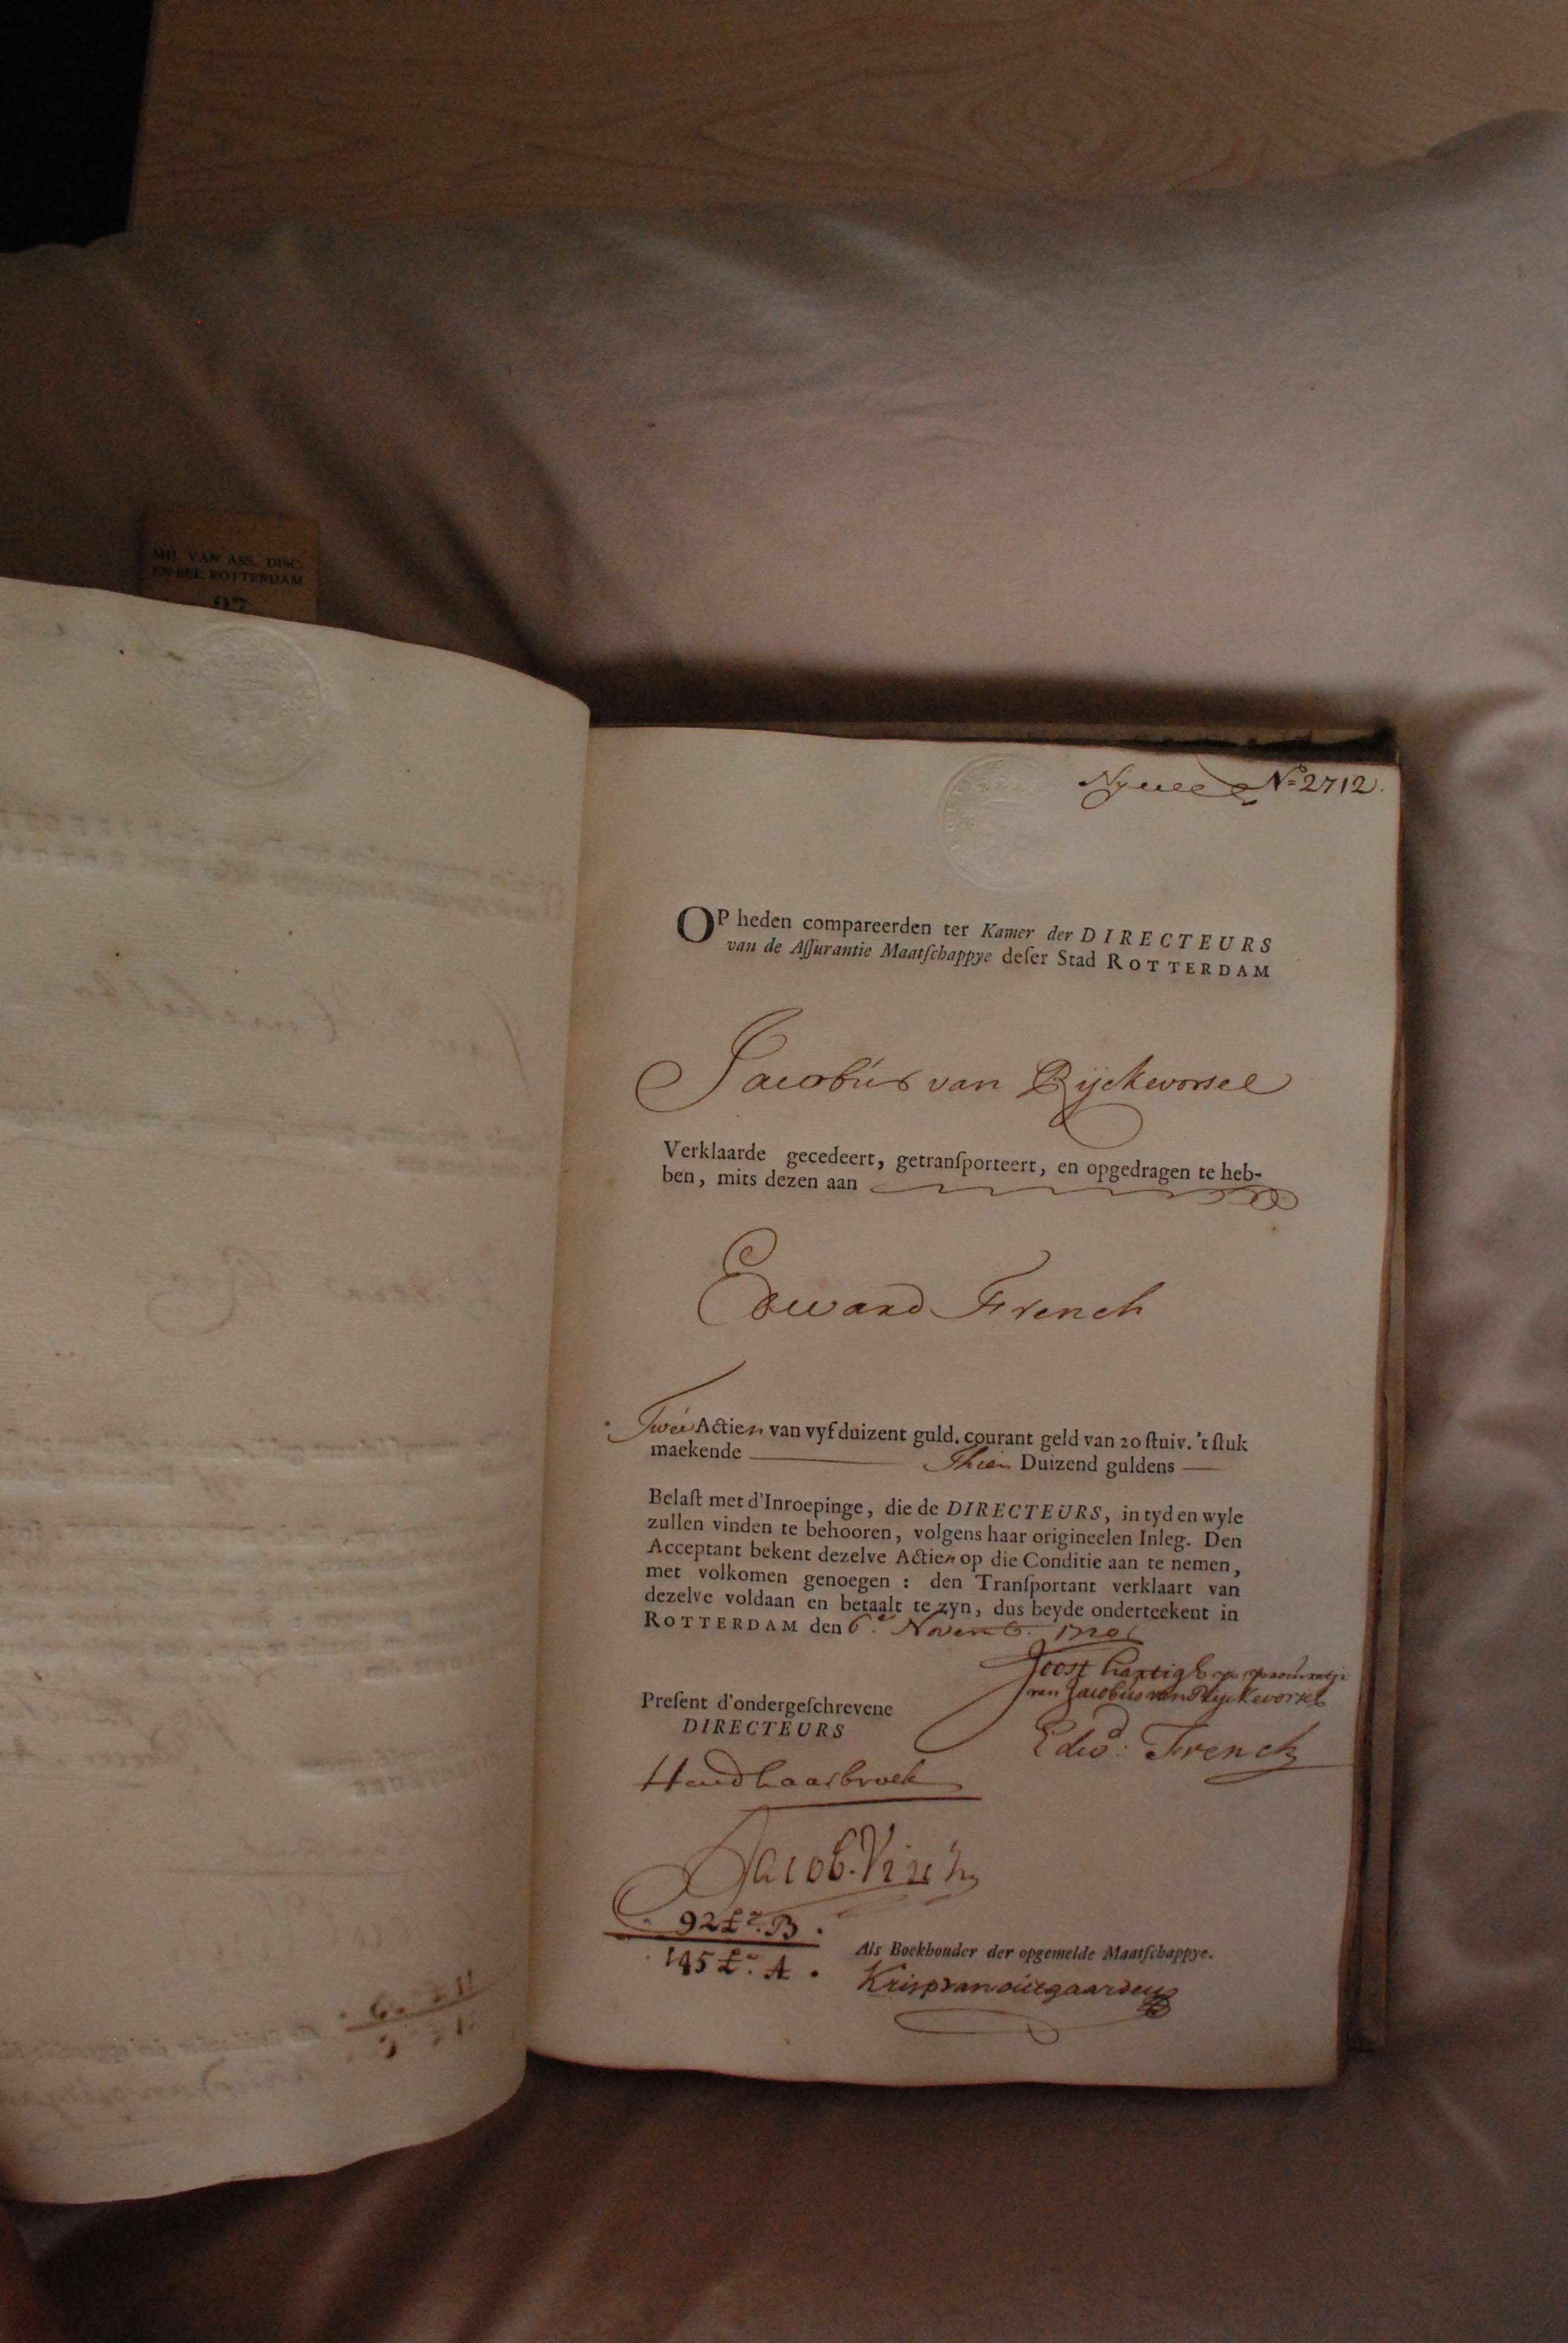 MIJ. VAN ASS. DISC.
EN BEL. ROTTERDAM
27
No 2712.
OP heden compareerden ter Kamer der DIRECTEURS
van de Aſſurantie Maatſchappye deſer Stad ROTTERDAM
Jacobús van Rijckevorsel
Verklaarde gecedeert, getranſporteert, en opgedragen te heb-
ben, mits dezen aan
Edward French
Twée Actien van vyf duizent guld. courant geld van 20 ſtuiv. 't ſtuk
maekende Thien Duizend guldens
Belaſt met d'Inroepinge, die de DIRECTEURS, in tyd en wyle
zullen vinden te behooren, volgens haar origineelen Inleg. Den
Acceptant bekent dezelve Actien op die Conditie aan te nemen,
met volkomen genoegen : den Tranſportant verklaart van
dezelve voldaan en betaalt te zyn, dus beyde onderteekent in
ROTTERDAM den 6.e Novemb. 1720
Joost hartigh
van Jacobus van Rijckevorsel
Preſent d'ondergeſchrevene
DIRECTEURS
Edwd: French
Hend haarbroek
Jacob. Visch
92 £r. B.
195 £r. A.
Als Boekhouder der opgemelde Maatſchappye.
Krisp van oúergaarden